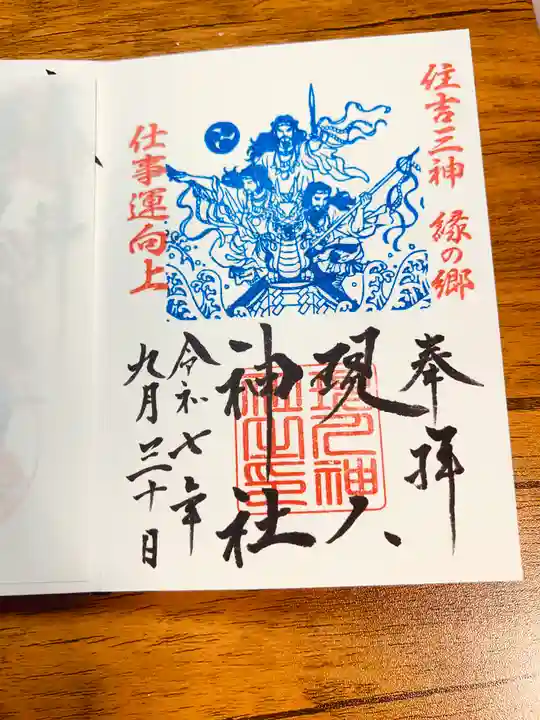 住吉三神 縁の郷
仕事運向上
奉拝
現人
神社
令和七年
九月三十日